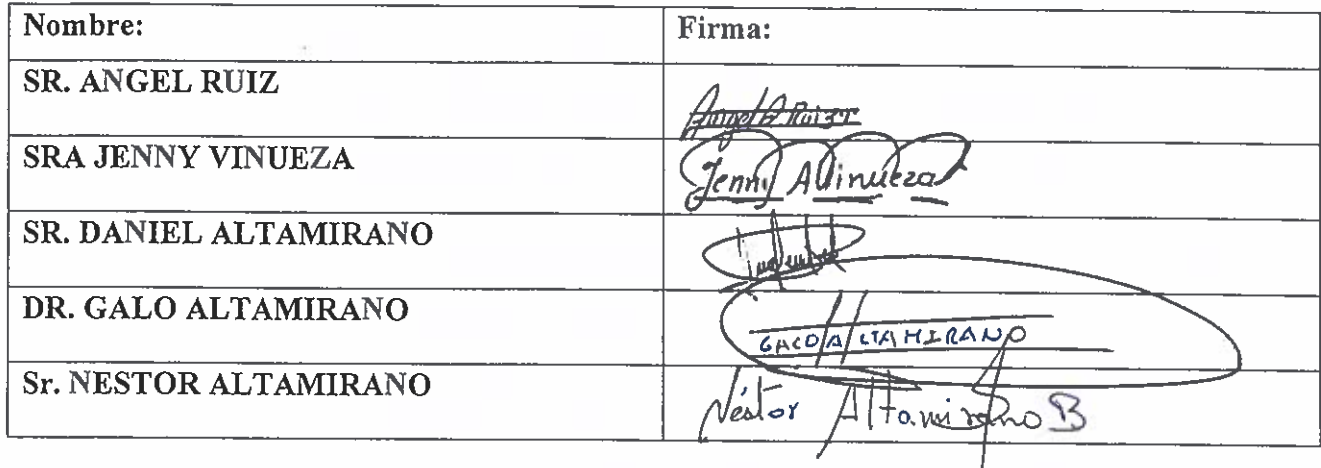 Nombre: Firma:
SR. ANGEL RUIZ Angel Ruiz
SRA JENNY VINUEZA Jenny A Vinueza
SR. DANIEL ALTAMIRANO
DR. GALO ALTAMIRANO GALO ALTAMIRANO
Sr. NESTOR ALTAMIRANO Néstor Altamirano B